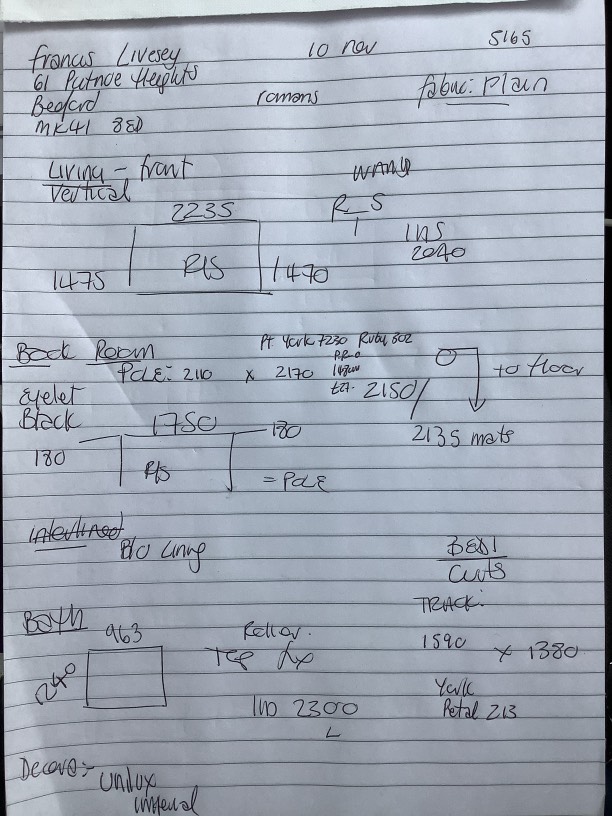 Francis Livesey
10 nov
5165
61 Putnoe Heights
Bedford
romans
fabric: Plain
MK41 8ED
Living - front
Vertical
2235
1475
R/S
1470
R S
INS
2040
Back Room
Pole: 2110 x 2170
Pt York 7230 Ruby 302
2150
to floor
2135
Eyelet
Black
1750
180
180
R/S
= Pole
Interlined
B/O Lining
BED 1
Curts
TRACK:
1590 x 1380
York
Petal 213
Bath
963
Roller.
Top fix
IND 2300
L
Decora:-
Unilux